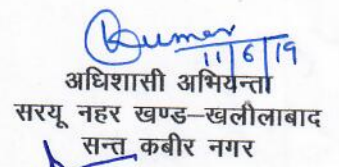 Kumar
11/6/19
अधिशासी अभियन्ता
सरयू नहर खण्ड–खलीलाबाद
सन्त कबीर नगर